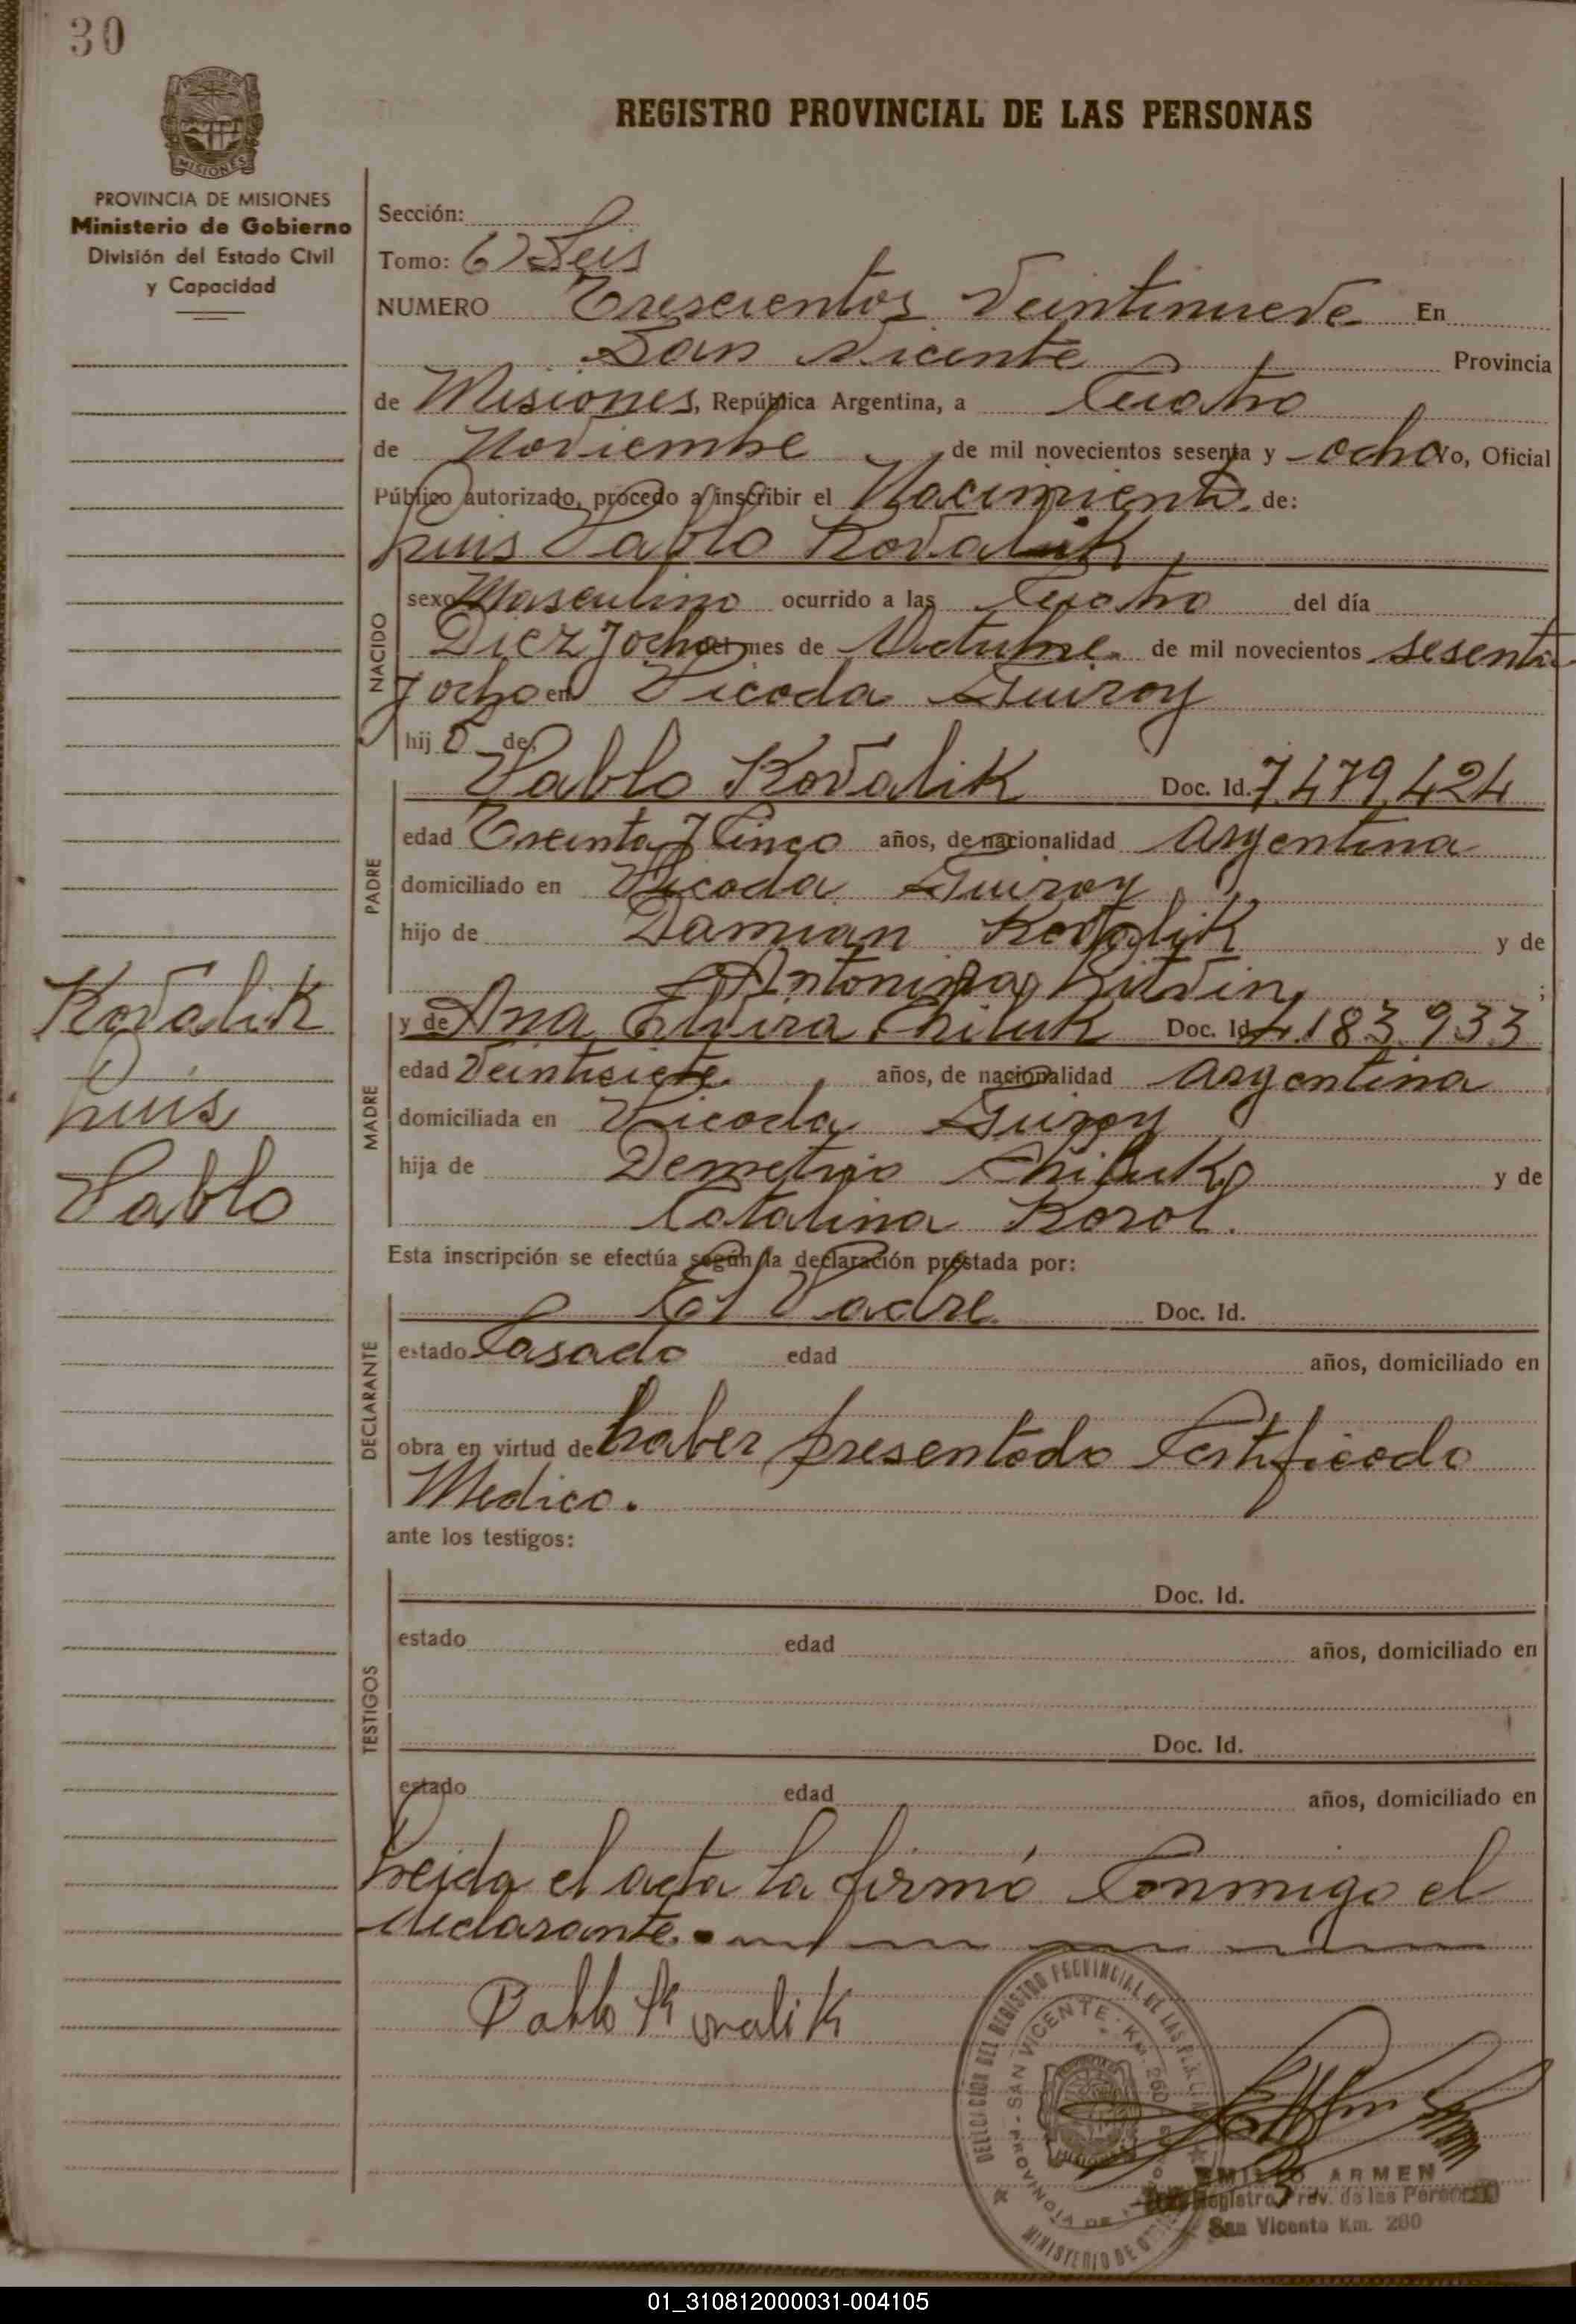 30
REGISTRO PROVINCIAL DE LAS PERSONAS
MISIONES
PROVINCIA DE MISIONES
Ministerio de Gobierno
División del Estado Civil
y Capacidad
Sección:
Tomo: 6) Seis
NUMERO Trescientos Veintinueve En
San Vicente Provincia
de Misiones, República Argentina, a Cuatro
de Noviembre de mil novecientos sesenta y ocho Yo, Oficial
Público autorizado, procedo a inscribir el Nacimiento de:
Luis Pablo Kovalik
NACIDO
sexo Masculino ocurrido a las Cuatro del día
Diez y ocho del mes de Octubre de mil novecientos sesenta
y ocho en Picada
hijo de
PADRE
Pablo Kovalik Doc. Id. 7.479.424
edad Treinta y Cinco años, de nacionalidad Argentina
domiciliado en Picada
hijo de Damian Kovalik y de
Antonina
MADRE
y de Ana Elvira Chiluk Doc. Id. 4.183.933
edad Veintisiete años, de nacionalidad Argentina
domiciliada en Picada
hija de Demetrio Chiluk y de
Catalina Korol.
Kovalik
Luis
Pablo
Esta inscripción se efectúa según la declaración prestada por:
DECLARANTE
El Padre Doc. Id.
estado Casado edad años, domiciliado en
obra en virtud de haber presentado Certificado
Medico.
ante los testigos:
TESTIGOS
Doc. Id.
estado edad años, domiciliado en
Doc. Id.
estado edad años, domiciliado en
Leida el acta la firmó Conmigo el
declarante.
Pablo Kovalik
DEL REGISTRO PROVINCIAL DE LAS
SAN VICENTE - KM. 260
PROVINCIA DE
MINISTERIO DE
EMILIO ARMEN
Registro Prov. de las Personas
San Vicente Km. 260
01_310812000031-004105